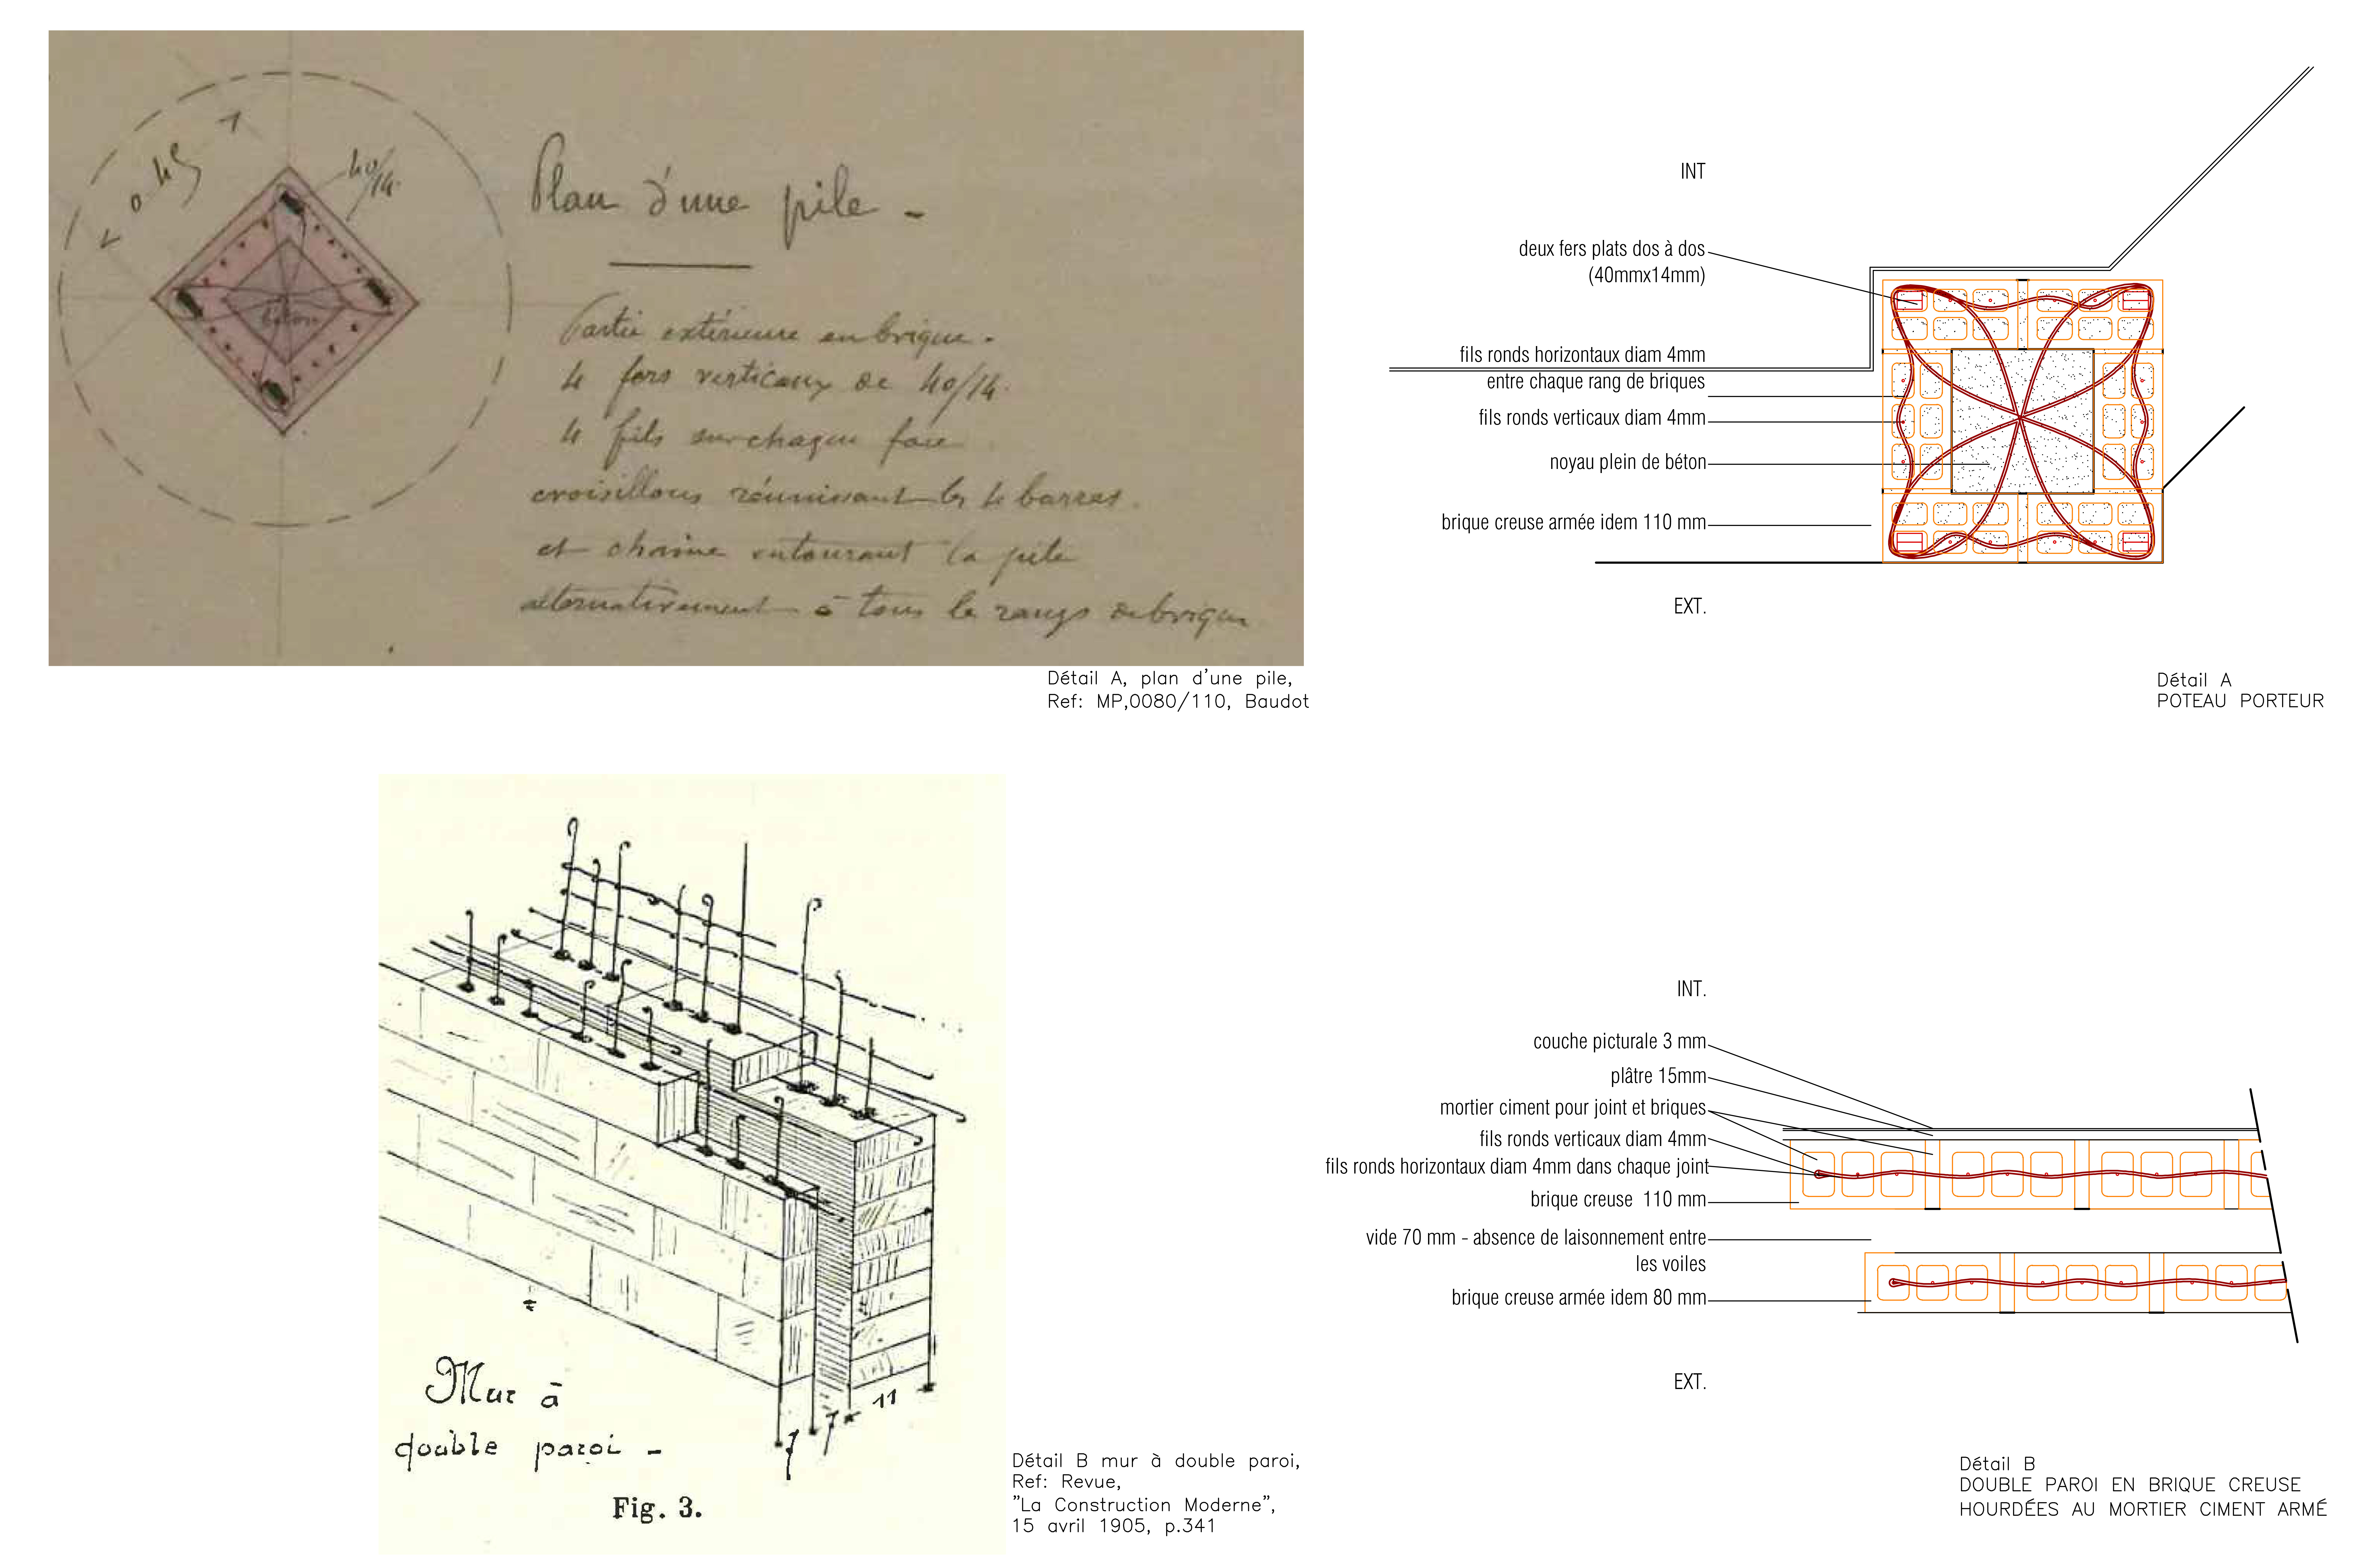 0.45
40/14
béton
Plan d'une pile -
Partie extérieure en brique.
4 fers verticaux de 40/14.
4 fils sur chaque face
croisillons réunissant les 4 barres.
et chaine entourant la pile
alternativement à tous les rangs de brique
Détail A, plan d'une pile,
Ref: MP,0080/110, Baudot
INT
deux fers plats dos à dos
(40mmx14mm)
fils ronds horizontaux diam 4mm
entre chaque rang de briques
fils ronds verticaux diam 4mm
noyau plein de béton
brique creuse armée idem 110 mm
EXT.
Détail A
POTEAU PORTEUR
Mur à
double paroi -
7 7 11
Fig. 3.
Détail B mur à double paroi,
Ref: Revue,
"La Construction Moderne",
15 avril 1905, p.341
INT.
couche picturale 3 mm
plâtre 15mm
mortier ciment pour joint et briques
fils ronds verticaux diam 4mm
fils ronds horizontaux diam 4mm dans chaque joint
brique creuse 110 mm
vide 70 mm - absence de laisonnement entre
les voiles
brique creuse armée idem 80 mm
EXT.
Détail B
DOUBLE PAROI EN BRIQUE CREUSE
HOURDÉES AU MORTIER CIMENT ARMÉ